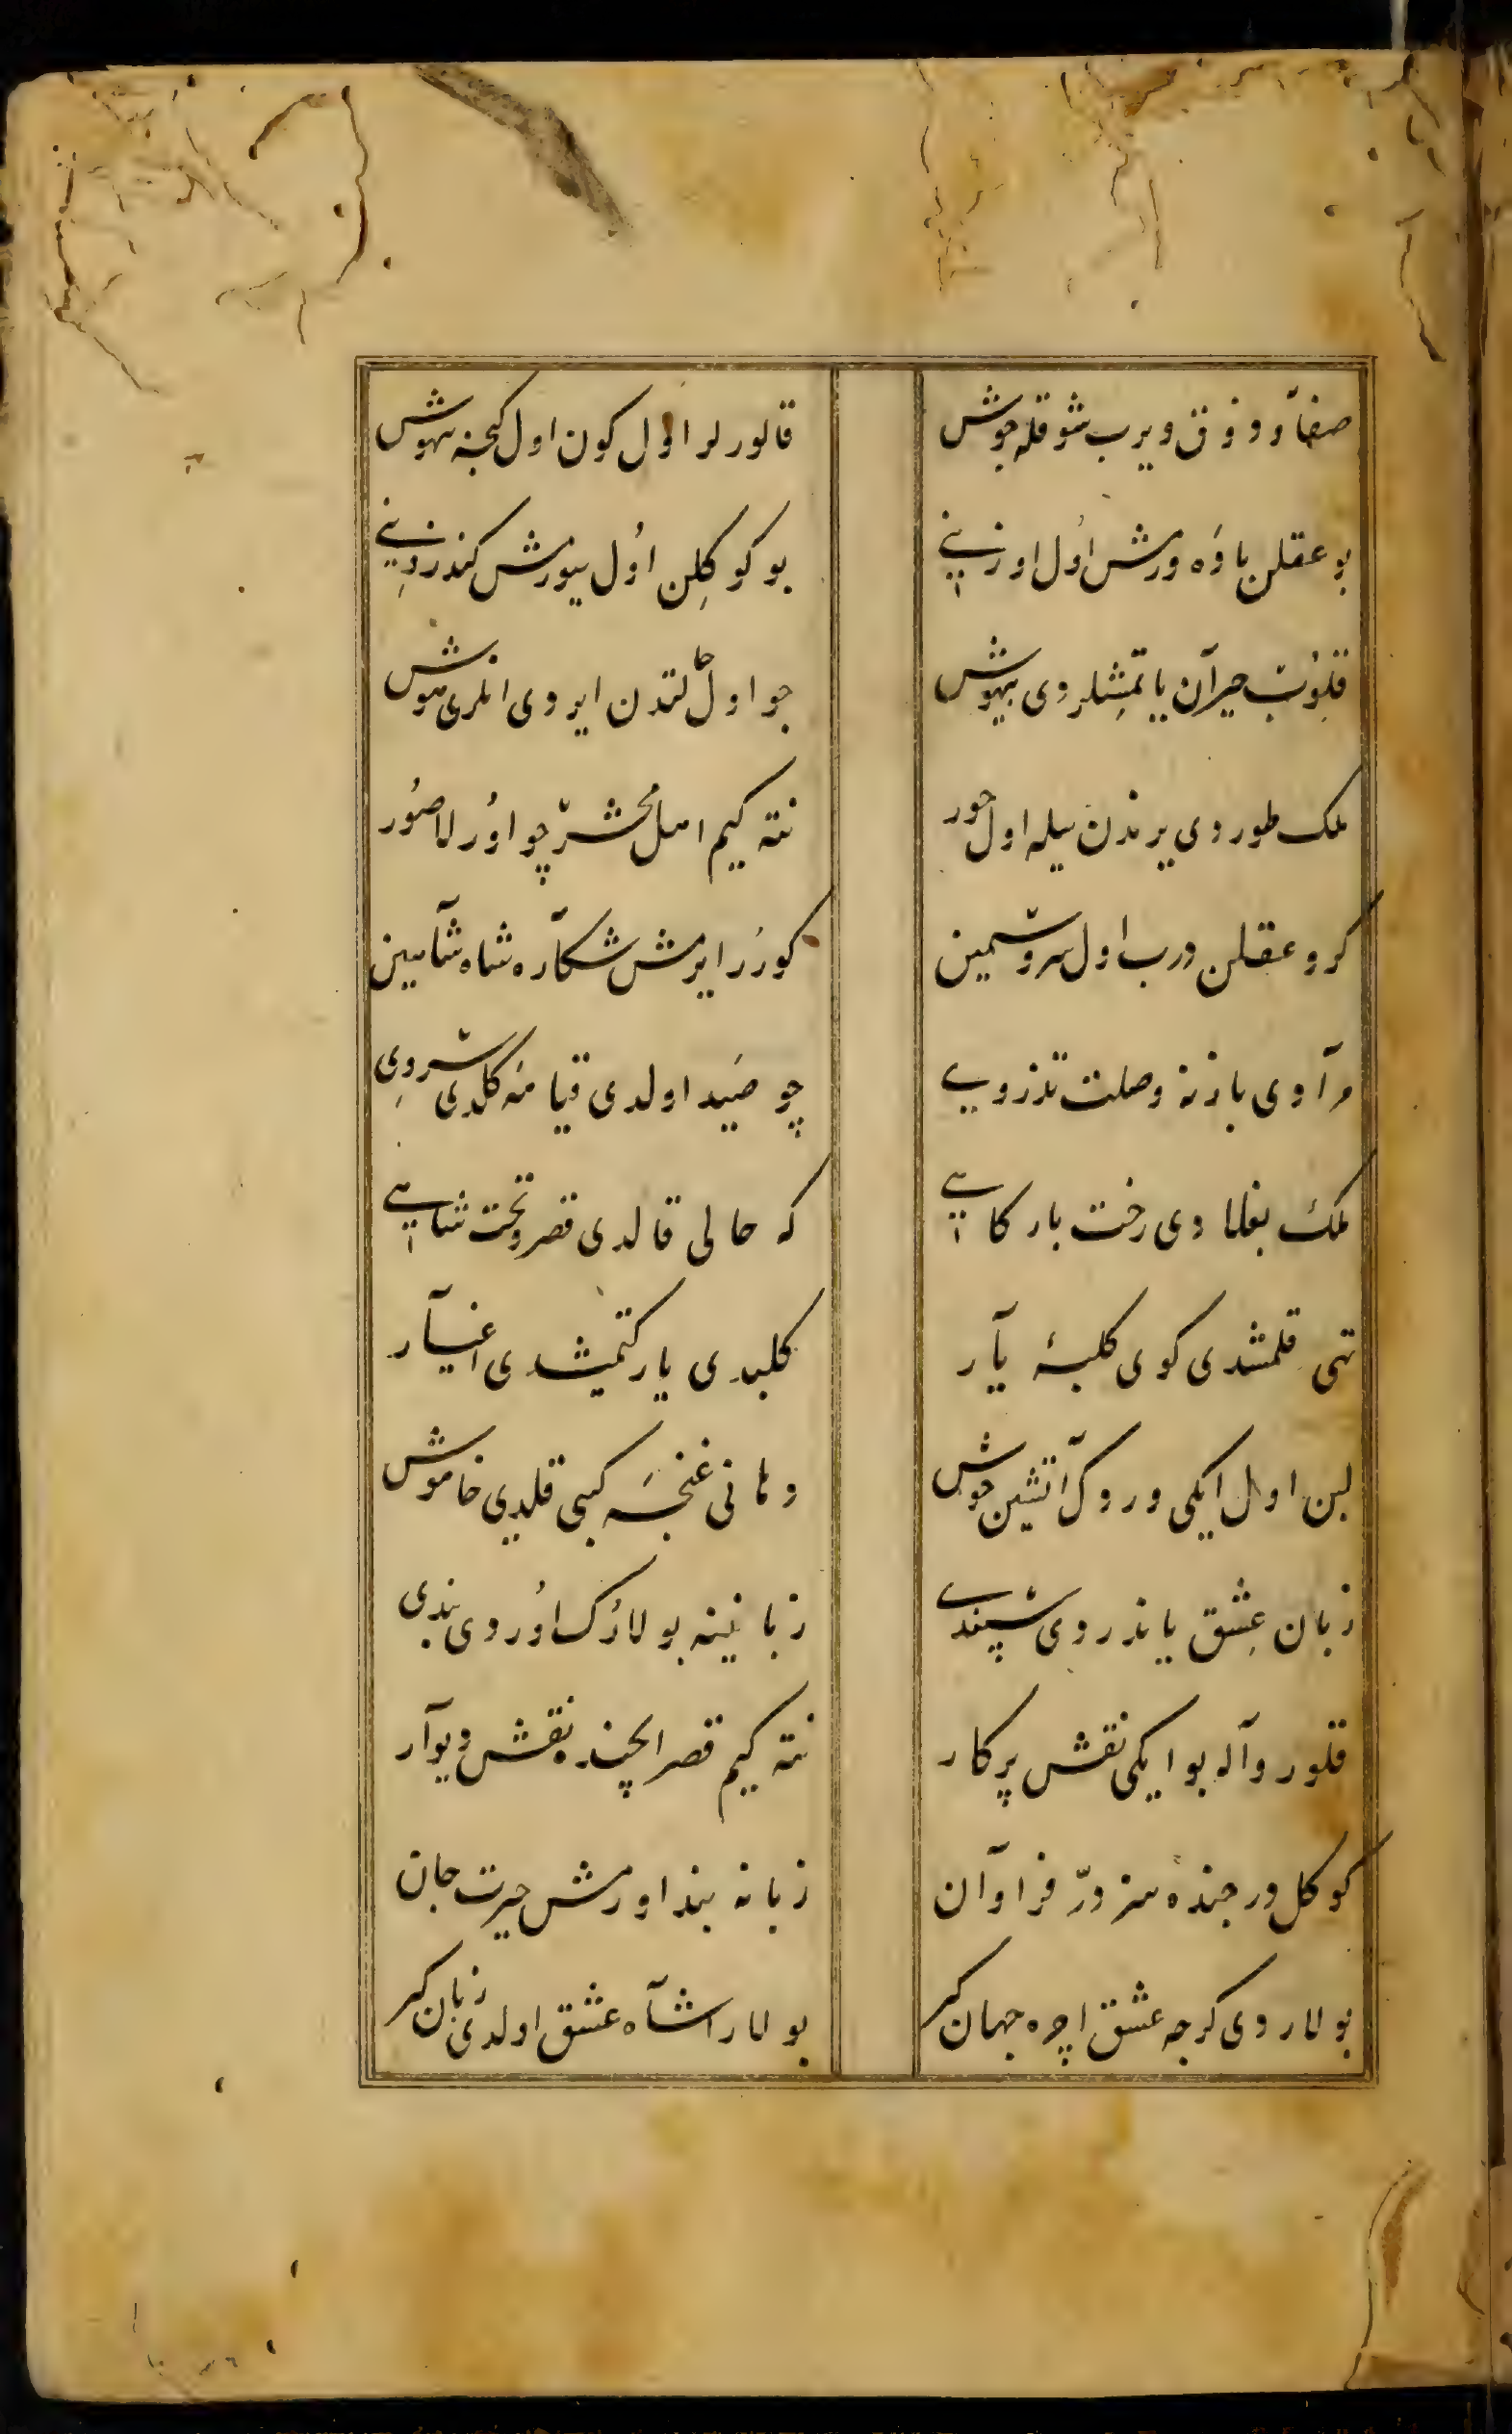 صفا و ذوق ویرب شوقله جوش قالورلر اول کون اول کیجه بیهوش
بو عقلن باده ورمش اول اوزنی بو کوکلن اول یتورمش کندوزنی
قلوب حیران یاتمشلردی بیهوش چو اول حالتدن ایردی انلری هوش
ملک طوردی یرندن بیله اول حور نته کیم اهل محشر چو اورلا صور
کرو عقلن درب اول سرو سیمین کورر ایرمش شکاره شاه شاهین
مرادی بازنه وصلت تذروی چو صید اولدی قیامه کلدی سروی
ملک بغلادی رخت بارکاهی که خالی قالدی قصر و تخت شاهی
تهی قلمشدی کوی کلبهٔ یار کلیدی یار کتمیشدی اغیار
لبن اول ایکی ورد آتشین جوش دهانی غنجه کبی قلدی خاموش
زبان عشق یاندردی سپندی زبانینه بولارک اوردی بندی
قلور واله بو ایکی نقش پرکار نته کیم قصر ایچنده نقش دیوار
کوکل درجنده سز در فراوان زبانه بند اورمش حیرت جان
بولاردی کرچه عشق اچره جهان کیر بولارا شاه عشق اولدی زبان کیر